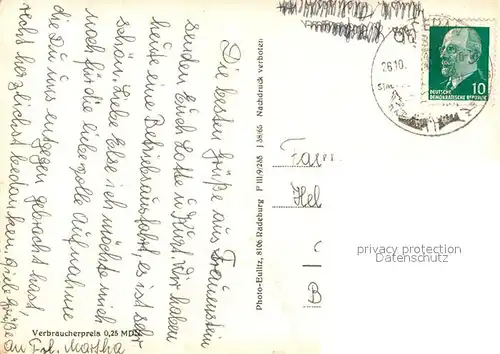 Die besten Grüße aus Frauenstein
senden Euch Lotte u. Kurt. Wir haben
heute eine Betriebsausfahrt, es ist sehr
schön. Liebe Else ich möchte mich
noch für die liebevolle Aufnahme
die Du uns entgegen gebracht hast,
recht herzlichst bedanken, viele Grüße
an Frl. Martha
Verbraucherpreis 0,25 MDN
Photo-Eulitz, 8106 Radeburg P III/9/265 J 38/65 Nachdruck verboten
26.10.
10
DEUTSCHE
DEMOKRATISCHE REPUBLIK
Fam
Hel
B
privacy protection
Datenschutz